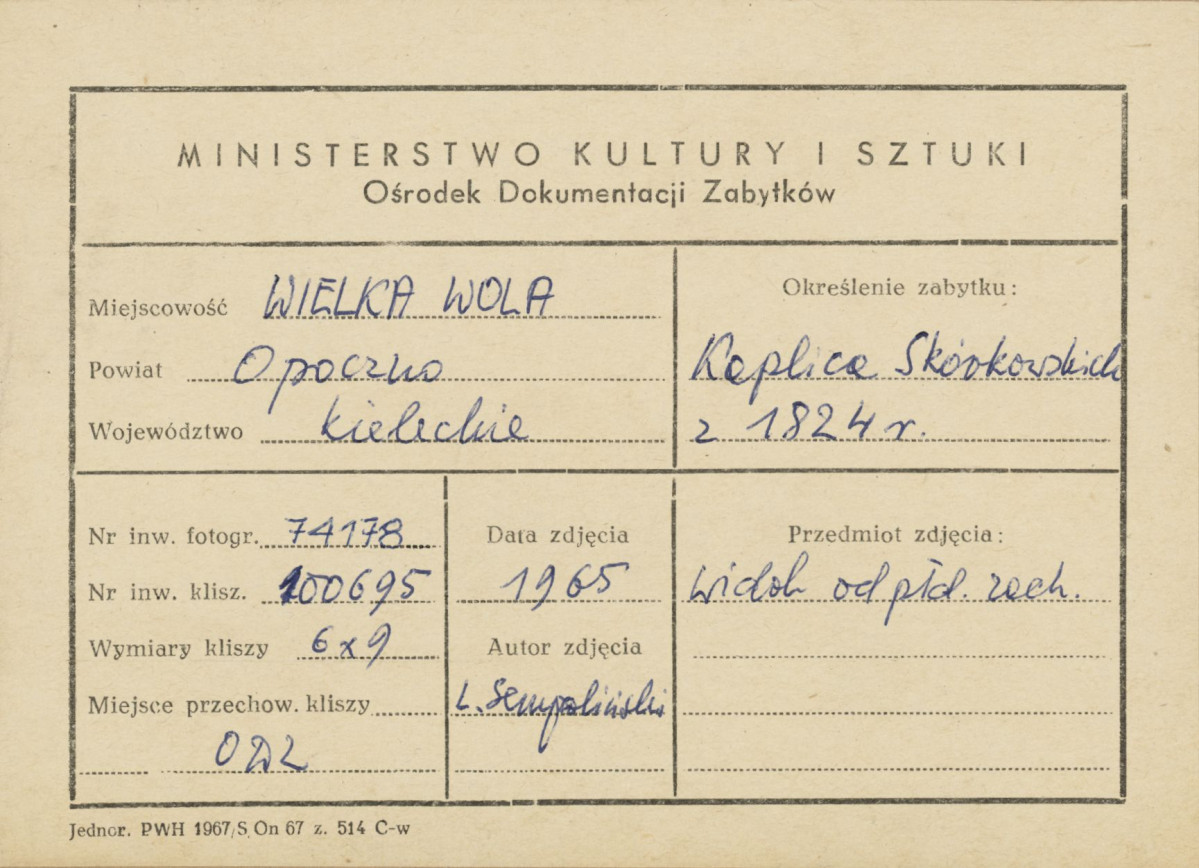 MINISTERSTWO KULTURY I SZTUKI
Ośrodek Dokumentacji Zabytków
Miejscowość WIELKA WOLA
Powiat Opoczno
Województwo kieleckie
Określenie zabytku:
Kaplica Skórkowskich
z 1824 r.
Nr inw. fotogr. 74178
Nr inw. klisz. 100695
Wymiary kliszy 6x9
Miejsce przechow. kliszy
ODZ
Data zdjęcia
1965
Autor zdjęcia
L. Sempoliński
Przedmiot zdjęcia:
widok od płd. zach.
Jednor. PWH 1967/S On 67 z. 514 C-w